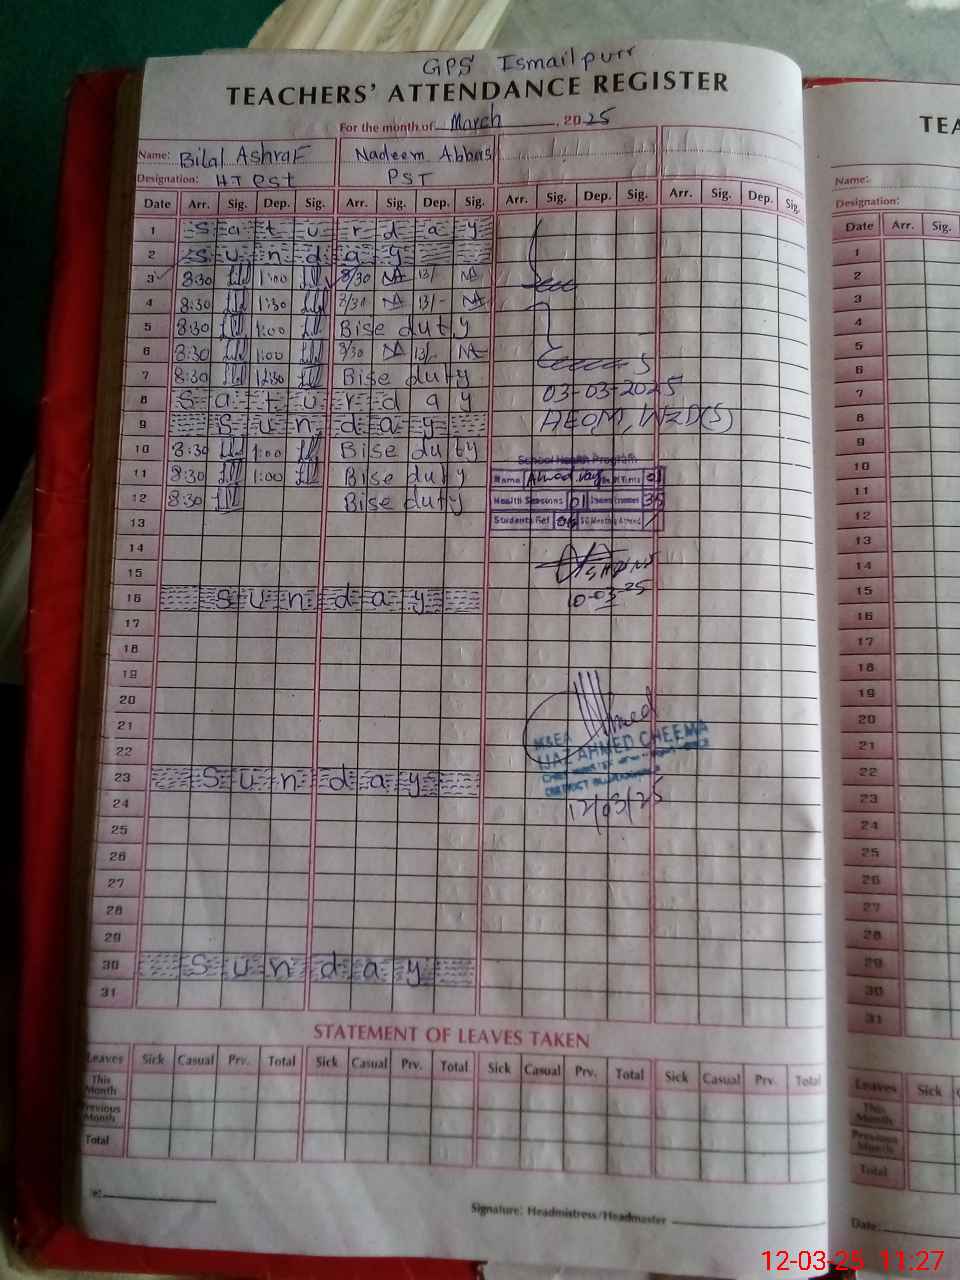 GPS Ismailpurr
TEACHERS' ATTENDANCE REGISTER
For the month of March, 2025
Name: Bilal Ashraf Nadeem Abbas
Designation: HT Pst PST
Date Arr. Sig. Dep. Sig. Arr. Sig. Dep. Sig. Arr. Sig. Dep. Sig. Arr. Sig. Dep. Sig.
1 Saturday
2 Sunday
3 8:30 1:00 8/30 NA 13/ NA
4 8:30 1:30 8/30 NA 13/- NA
5 8:30 1:00 Bise duty
6 8:30 1:00 8/30 NA 13/- NA
7 8:30 12:30 Bise duty
03-03-2025
8 Saturday
9 Sunday
10 8:30 1:00 Bise duty
School Health Program
11 8:30 1:00 Bise duty
Name
12 8:30 Bise duty
Health Sessions 01 35
13
Students Ref
14
15
10-03-25
16 Sunday
17
18
19
20
21
Ahmed
M&EA
22
IJAZ AHMED CHEEMA
23 Sunday
12/03/25
24
25
26
27
28
29
30 Sunday
31
STATEMENT OF LEAVES TAKEN
Leaves Sick Casual Prv. Total Sick Casual Prv. Total Sick Casual Prv. Total Sick Casual Prv. Total
This Month
Previous Month
Total
Signature: Headmistress/Headmaster
TEA
Name:
Designation:
Date Arr. Sig.
1
2
3
4
5
6
7
8
9
10
11
12
13
14
15
16
17
18
19
20
21
22
23
24
25
26
27
28
29
30
31
Leaves Sick
This Month
Previous Month
Total
Date:
12-03-25 11:27